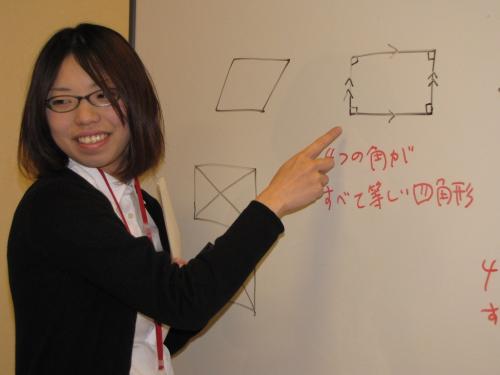 4つの角が
すべて等しい四角形
4
す